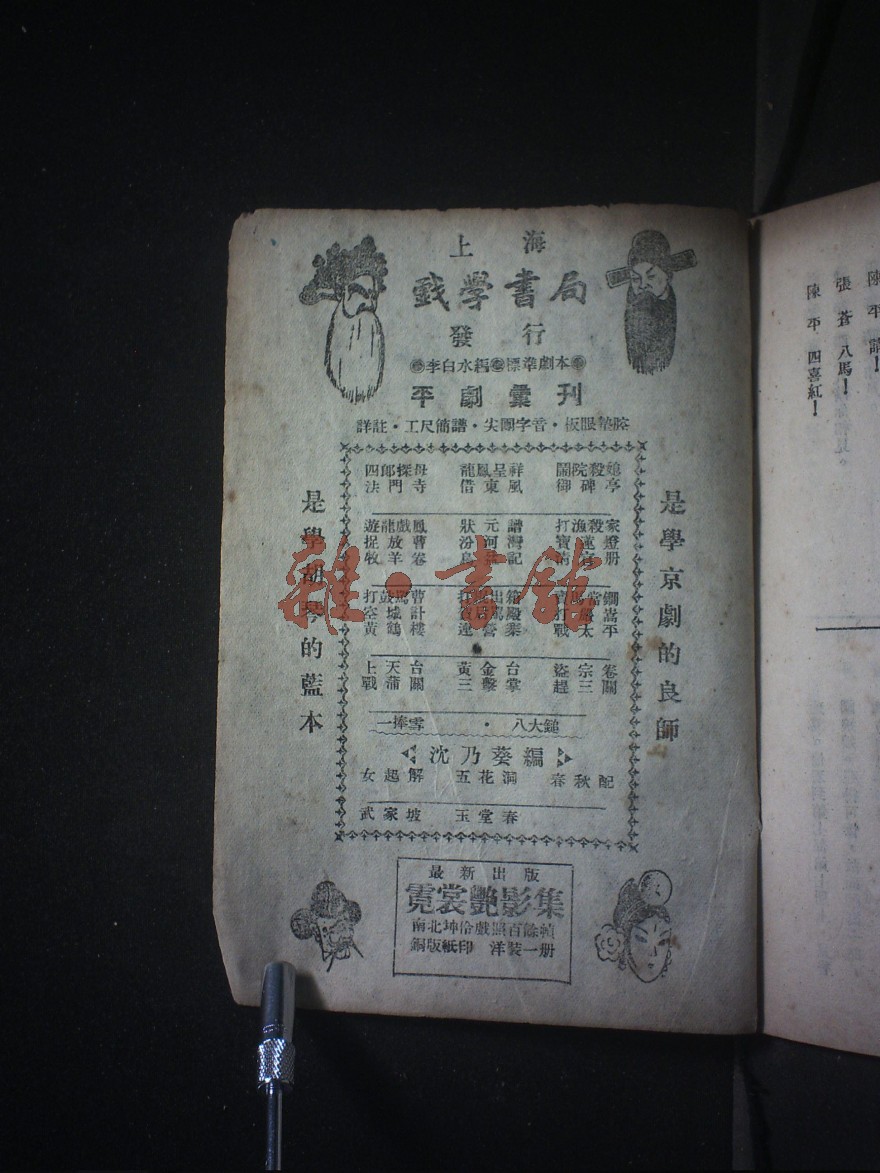 上海
戲學書局
發行
李白水編 標準劇本
平劇彙刊
詳註・工尺簡譜・尖團字音・板眼
是學胡琴的藍本
是學京劇的良師
四郎探母 龍鳳呈祥 鬧院殺媳
法門寺 借東風 御碑亭
遊龍戲鳳 狀元譜 打漁殺家
捉放曹 汾河灣 寶蓮燈
牧羊卷
打鼓罵曹
空城計
黃鶴樓 連營寨 戰太平
上天台 黃金台 盜宗卷
戰蒲關 三擊掌 趕三關
一捧雪 ・ 八大鎚
沈乃葵編
女起解 五花洞 春秋配
武家坡 玉堂春
最新出版
霓裳艷影集
南北坤伶戲照百餘幀
銅版紙印 洋裝一册
雜・書館
張蒼 八馬！
陳平 四喜紅！